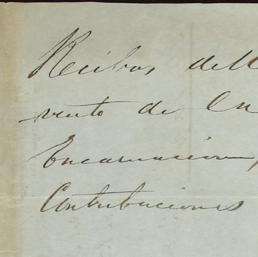 Recibos del
vento de la
Encarnacion,
Contribuciones